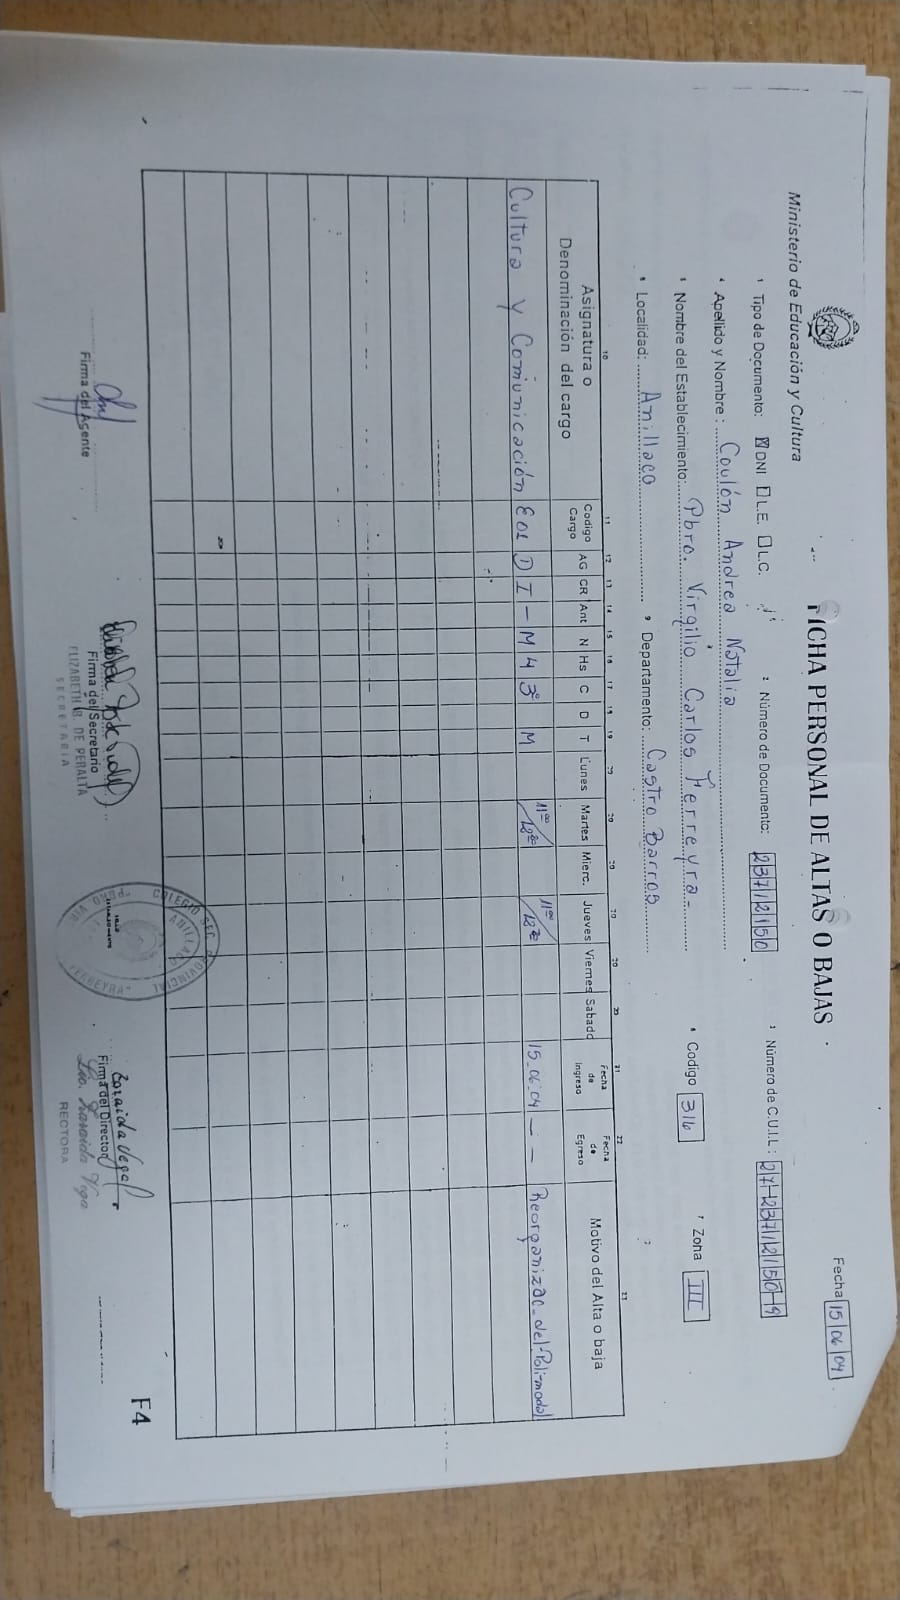 Ministerio de Educación y Cultura
FICHA PERSONAL DE ALTAS O BAJAS
Fecha 15 06 04
¹ Tipo de Documento: ☒ DNI ☐ L.E. ☐ L.C.
² Número de Documento: 23712150
³ Número de C.U.I.L.: 27-23712150-9
⁴ Apellido y Nombre: Coulón Andrea Natalia
⁵ Nombre del Establecimiento: Pbro. Virgilio Carlos Ferreyra-
⁶ Codigo 316
⁷ Zona III
⁸ Localidad: Anillaco
⁹ Departamento: Castro Barros
10 11 12 13 14 15 16 17 18 19 20 20 20 20 20 20 21 22 23
Asignatura o Denominación del cargo Codigo Cargo AG CR Ant N Hs C D T Lunes Martes Mierc. Jueves Viernes Sabado Fecha de Ingreso Fecha de Egreso Motivo del Alta o baja
Cultura y Comunicación E01 D I - M 4 3º M 11⁰⁰/12²⁰ 11⁰⁰/12²⁰ 15-06-04 - - Reorganizac-del-Polimodal
Firma del Agente
Firma del Secretario
ELIZABETH B. DE PERALTA
SECRETARIA
COLEGIO SEC. PROVINCIAL
ANILLACO
FERREYRA
Zaraida Vega
Firma del Director
Lic. Zaraida Vega
RECTORA
F4